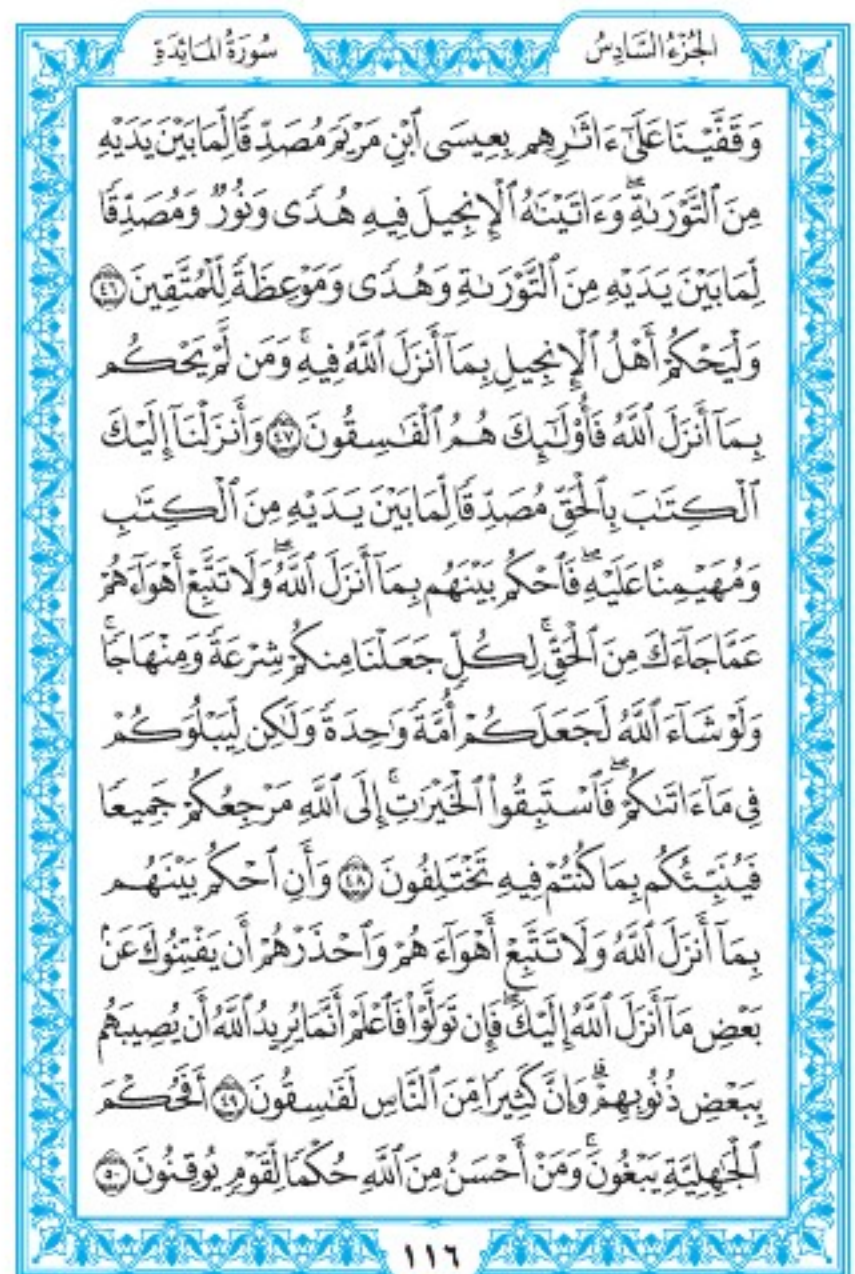 الجُزْءُ السَّادِسُ سُورَةُ المَائِدَةِ
وَقَفَّيْنَا عَلَىٰٓ ءَاثَٰرِهِم بِعِيسَى ٱبْنِ مَرْيَمَ مُصَدِّقًا لِّمَا بَيْنَ يَدَيْهِ
مِنَ ٱلتَّوْرَىٰةِۖ وَءَاتَيْنَٰهُ ٱلْإِنجِيلَ فِيهِ هُدًى وَنُورٌ وَمُصَدِّقًا
لِّمَا بَيْنَ يَدَيْهِ مِنَ ٱلتَّوْرَىٰةِ وَهُدًى وَمَوْعِظَةً لِّلْمُتَّقِينَ ٤٦
وَلْيَحْكُمْ أَهْلُ ٱلْإِنجِيلِ بِمَآ أَنزَلَ ٱللَّهُ فِيهِۚ وَمَن لَّمْ يَحْكُم
بِمَآ أَنزَلَ ٱللَّهُ فَأُو۟لَٰٓئِكَ هُمُ ٱلْفَٰسِقُونَ ٤٧ وَأَنزَلْنَآ إِلَيْكَ
ٱلْكِتَٰبَ بِٱلْحَقِّ مُصَدِّقًا لِّمَا بَيْنَ يَدَيْهِ مِنَ ٱلْكِتَٰبِ
وَمُهَيْمِنًا عَلَيْهِۖ فَٱحْكُم بَيْنَهُم بِمَآ أَنزَلَ ٱللَّهُۖ وَلَا تَتَّبِعْ أَهْوَآءَهُمْ
عَمَّا جَآءَكَ مِنَ ٱلْحَقِّۚ لِكُلٍّ جَعَلْنَا مِنكُمْ شِرْعَةً وَمِنْهَاجًاۚ
وَلَوْ شَآءَ ٱللَّهُ لَجَعَلَكُمْ أُمَّةً وَٰحِدَةً وَلَٰكِن لِّيَبْلُوَكُمْ
فِى مَآ ءَاتَىٰكُمْۖ فَٱسْتَبِقُوا۟ ٱلْخَيْرَٰتِۚ إِلَى ٱللَّهِ مَرْجِعُكُمْ جَمِيعًا
فَيُنَبِّئُكُم بِمَا كُنتُمْ فِيهِ تَخْتَلِفُونَ ٤٨ وَأَنِ ٱحْكُم بَيْنَهُم
بِمَآ أَنزَلَ ٱللَّهُ وَلَا تَتَّبِعْ أَهْوَآءَهُمْ وَٱحْذَرْهُمْ أَن يَفْتِنُوكَ عَنۢ
بَعْضِ مَآ أَنزَلَ ٱللَّهُ إِلَيْكَۖ فَإِن تَوَلَّوْا۟ فَٱعْلَمْ أَنَّمَا يُرِيدُ ٱللَّهُ أَن يُصِيبَهُم
بِبَعْضِ ذُنُوبِهِمْۗ وَإِنَّ كَثِيرًا مِّنَ ٱلنَّاسِ لَفَٰسِقُونَ ٤٩ أَفَحُكْمَ
ٱلْجَٰهِلِيَّةِ يَبْغُونَۚ وَمَنْ أَحْسَنُ مِنَ ٱللَّهِ حُكْمًا لِّقَوْمٍ يُوقِنُونَ ٥٠
١١٦